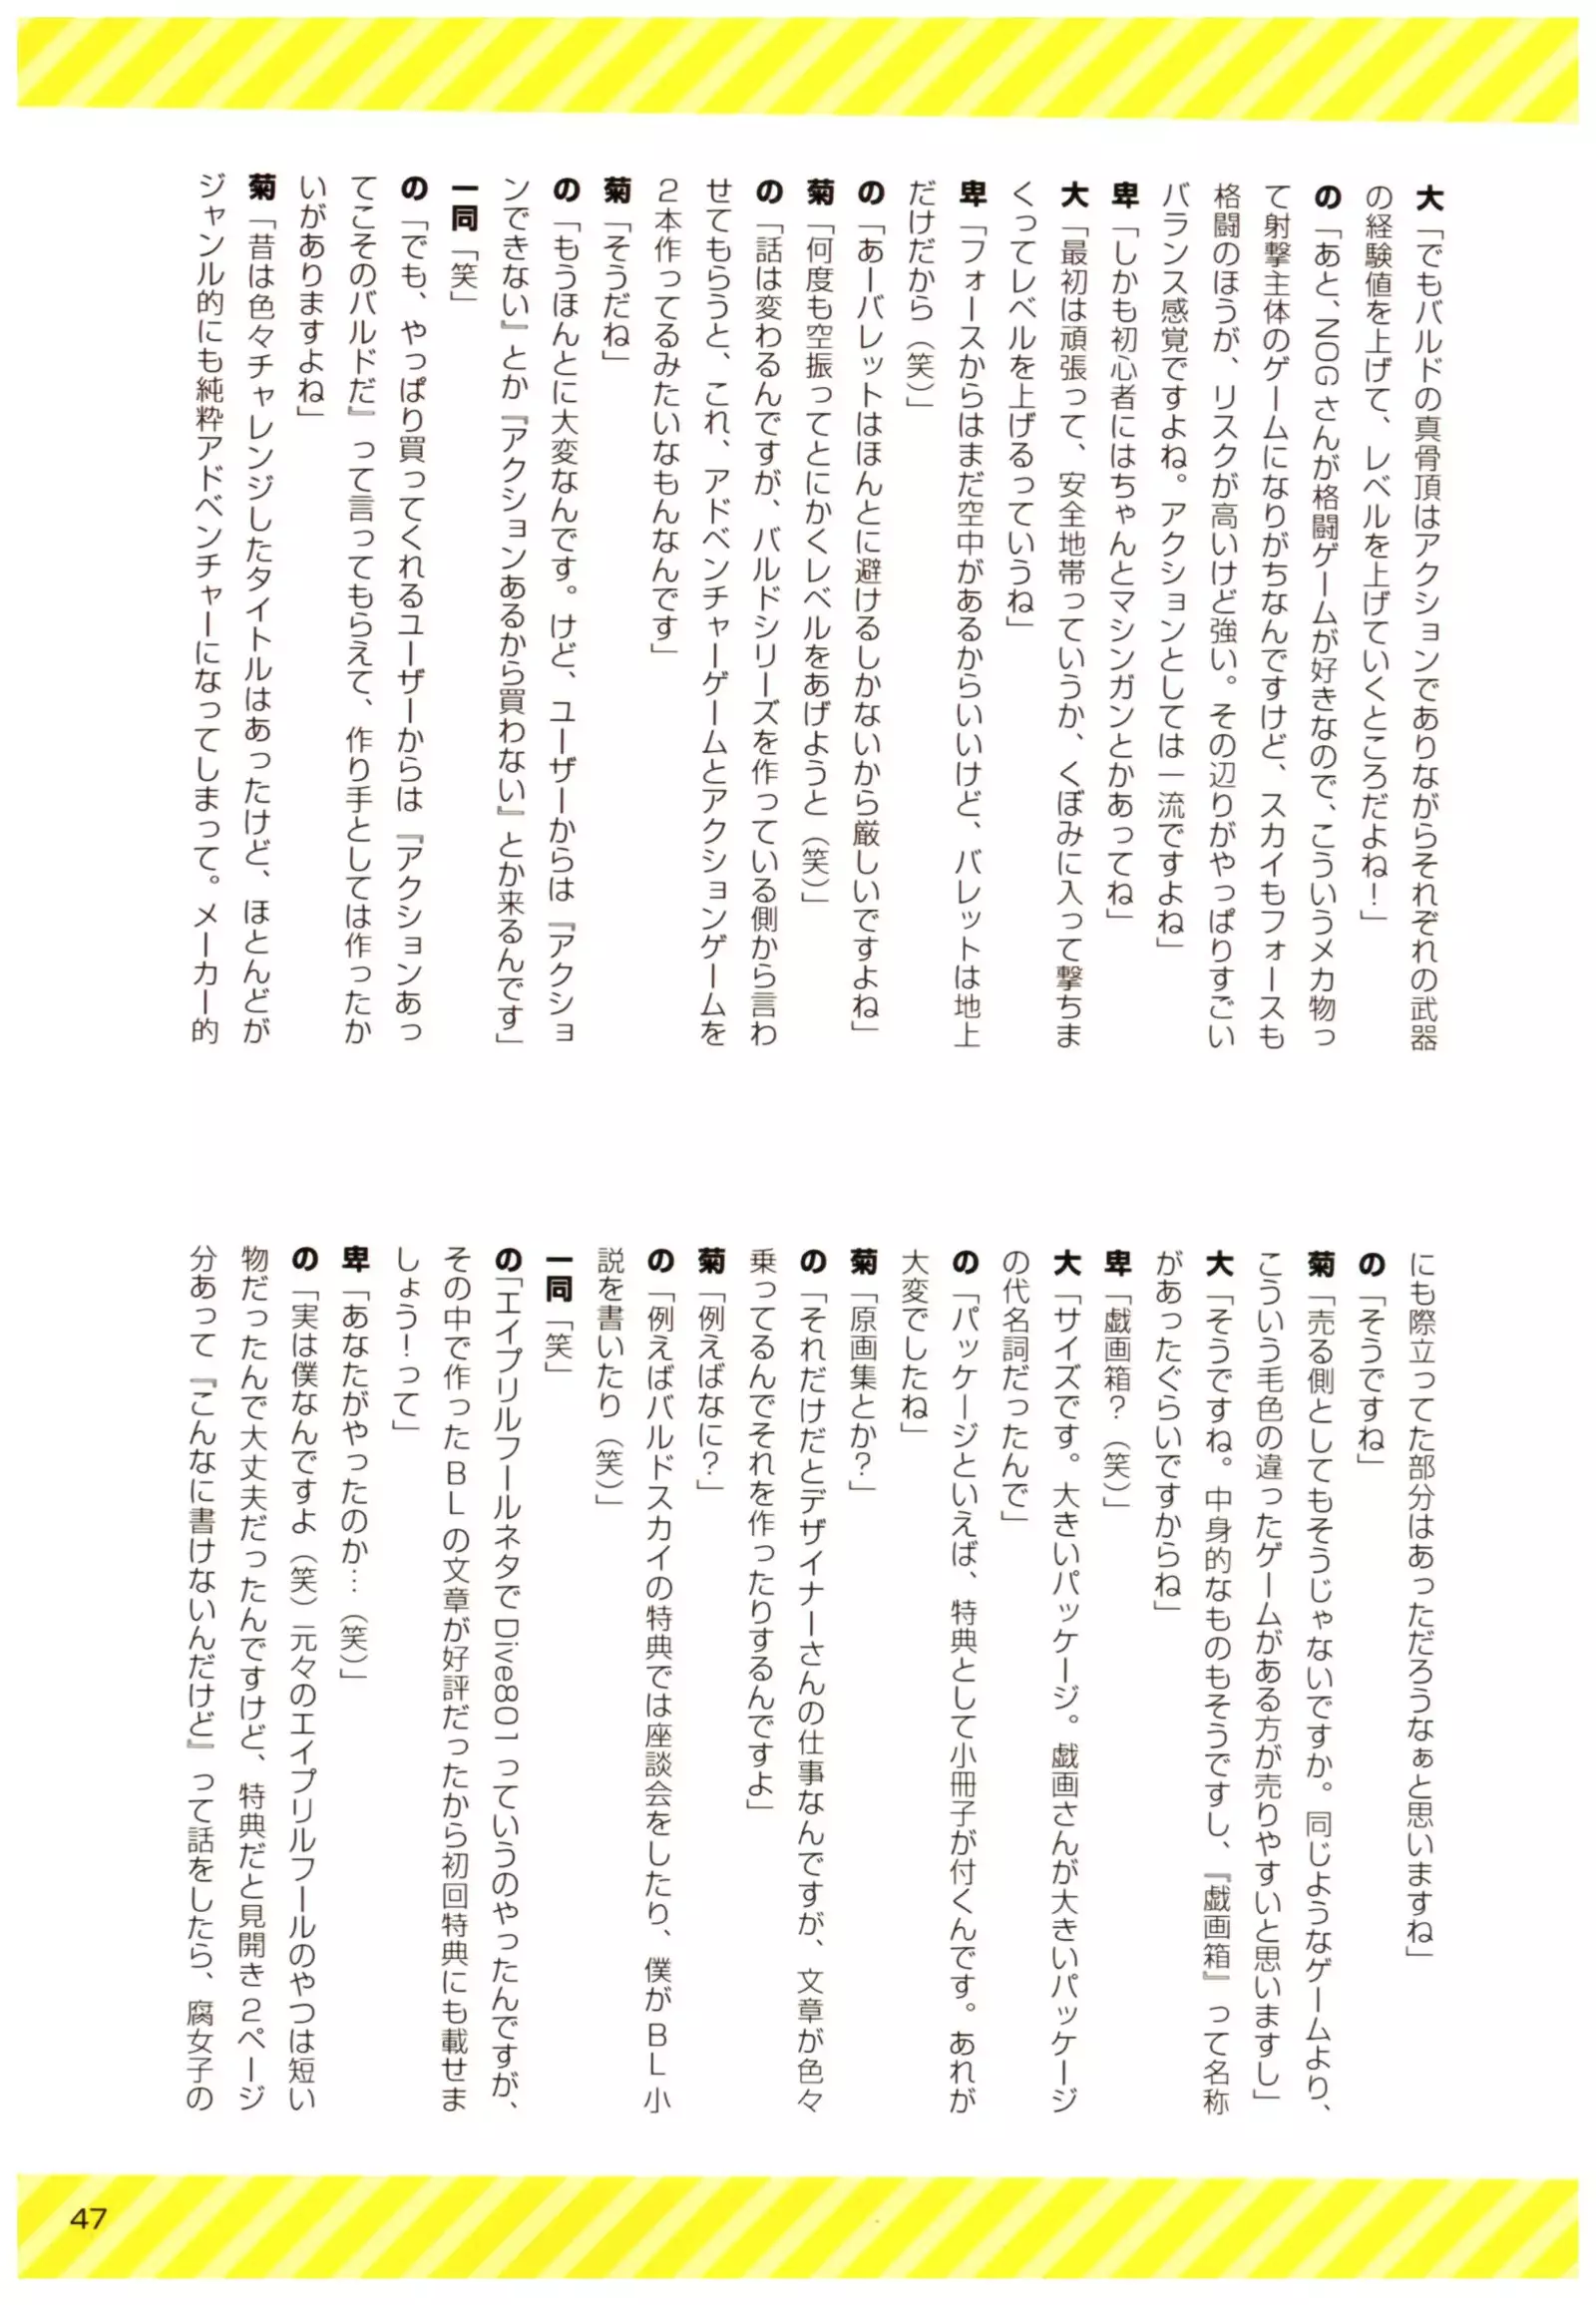 大「でもバルドの真骨頂はアクションでありながらそれぞれの武器
の経験値を上げて、レベルを上げていくところだよね！」
の「あと、NOGさんが格闘ゲームが好きなので、こういうメカ物っ
て射撃主体のゲームになりがちなんですけど、スカイもフォースも
格闘のほうが、リスクが高いけど強い。その辺りがやっぱりすごい
バランス感覚ですよね。アクションとしては一流ですよね」
卑「しかも初心者にはちゃんとマシンガンとかあってね」
大「最初は頑張って、安全地帯っていうか、くぼみに入って撃ちま
くってレベルを上げるっていうね」
卑「フォースからはまだ空中があるからいいけど、バレットは地上
だけだから（笑）」
の「あーバレットはほんとに避けるしかないから厳しいですよね」
菊「何度も空振ってとにかくレベルをあげようと（笑）」
の「話は変わるんですが、バルドシリーズを作っている側から言わ
せてもらうと、これ、アドベンチャーゲームとアクションゲームを
２本作ってるみたいなもんなんです」
菊「そうだね」
の「もうほんとに大変なんです。けど、ユーザーからは『アクショ
ンできない』とか『アクションあるから買わない』とか来るんです」
一同「笑」
の「でも、やっぱり買ってくれるユーザーからは『アクションあっ
てこそのバルドだ』って言ってもらえて、作り手としては作ったか
いがありますよね」
菊「昔は色々チャレンジしたタイトルはあったけど、ほとんどが
ジャンル的にも純粋アドベンチャーになってしまって。メーカー的
にも際立ってた部分はあっただろうなぁと思いますね」
の「そうですね」
菊「売る側としてもそうじゃないですか。同じようなゲームより、
こういう毛色の違ったゲームがある方が売りやすいと思いますし」
大「そうですね。中身的なものもそうですし、『戯画箱』って名称
があったぐらいですからね」
卑「戯画箱？（笑）」
大「サイズです。大きいパッケージ。戯画さんが大きいパッケージ
の代名詞だったんで」
の「パッケージといえば、特典として小冊子が付くんです。あれが
大変でしたね」
菊「原画集とか？」
の「それだけだとデザイナーさんの仕事なんですが、文章が色々
乗ってるんでそれを作ったりするんですよ」
菊「例えばなに？」
の「例えばバルドスカイの特典では座談会をしたり、僕がＢＬ小
説を書いたり（笑）」
一同「笑」
の「エイプリルフールネタでDive801っていうのやったんですが、
その中で作ったＢＬの文章が好評だったから初回特典にも載せま
しょう！って」
卑「あなたがやったのか…（笑）」
の「実は僕なんですよ（笑）元々のエイプリルフールのやつは短い
物だったんで大丈夫だったんですけど、特典だと見開き２ページ
分あって『こんなに書けないんだけど』って話をしたら、腐女子の
47